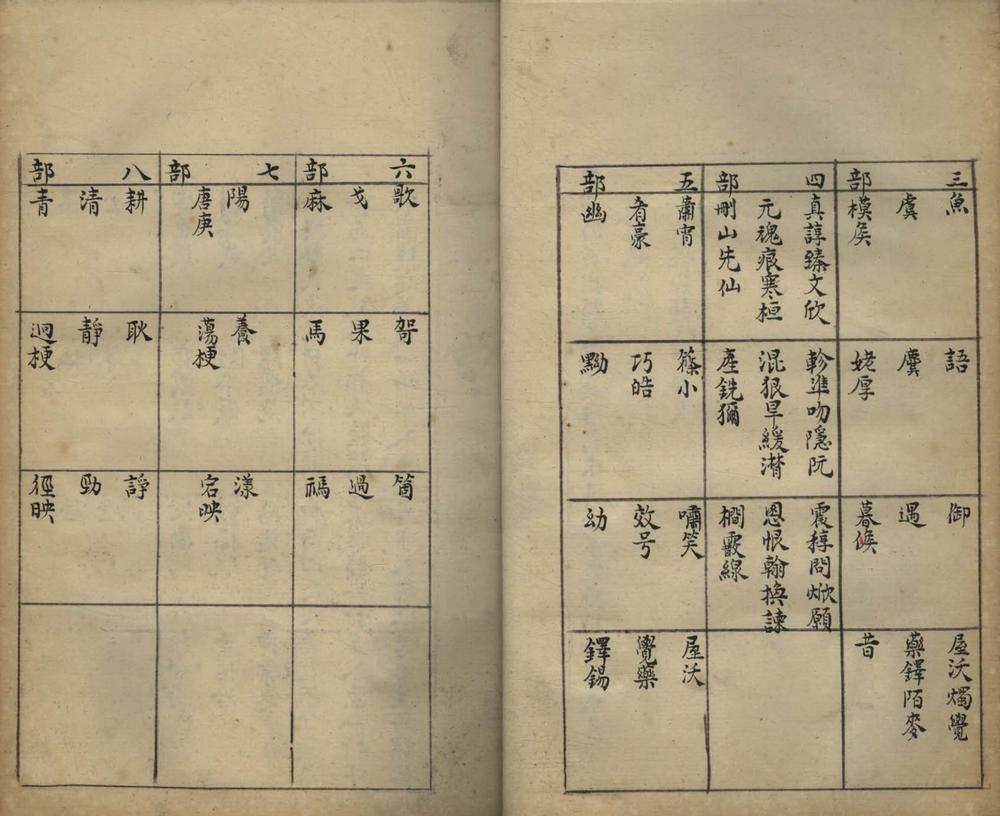 三部
魚
虞
模矦
語
麌
姥厚
御
遇
暮候
屋沃燭覺
藥鐸陌麥
昔
四部
真諄臻文欣
元魂痕寒桓
刪山先仙
軫準吻隱阮
混狠旱緩潸
產銑獮
震稕問焮願
恩恨翰換諫
橺霰線
五部
蕭宵
肴豪
幽
篠小
巧皓
黝
嘯笑
效号
幼
屋沃
覺藥
鐸錫
六部
歌
戈
麻
哿
果
馬
箇
過
禡
七部
陽
唐庚
養
蕩梗
漾
宕映
八部
耕
清
青
耿
靜
迥梗
諍
勁
徑映